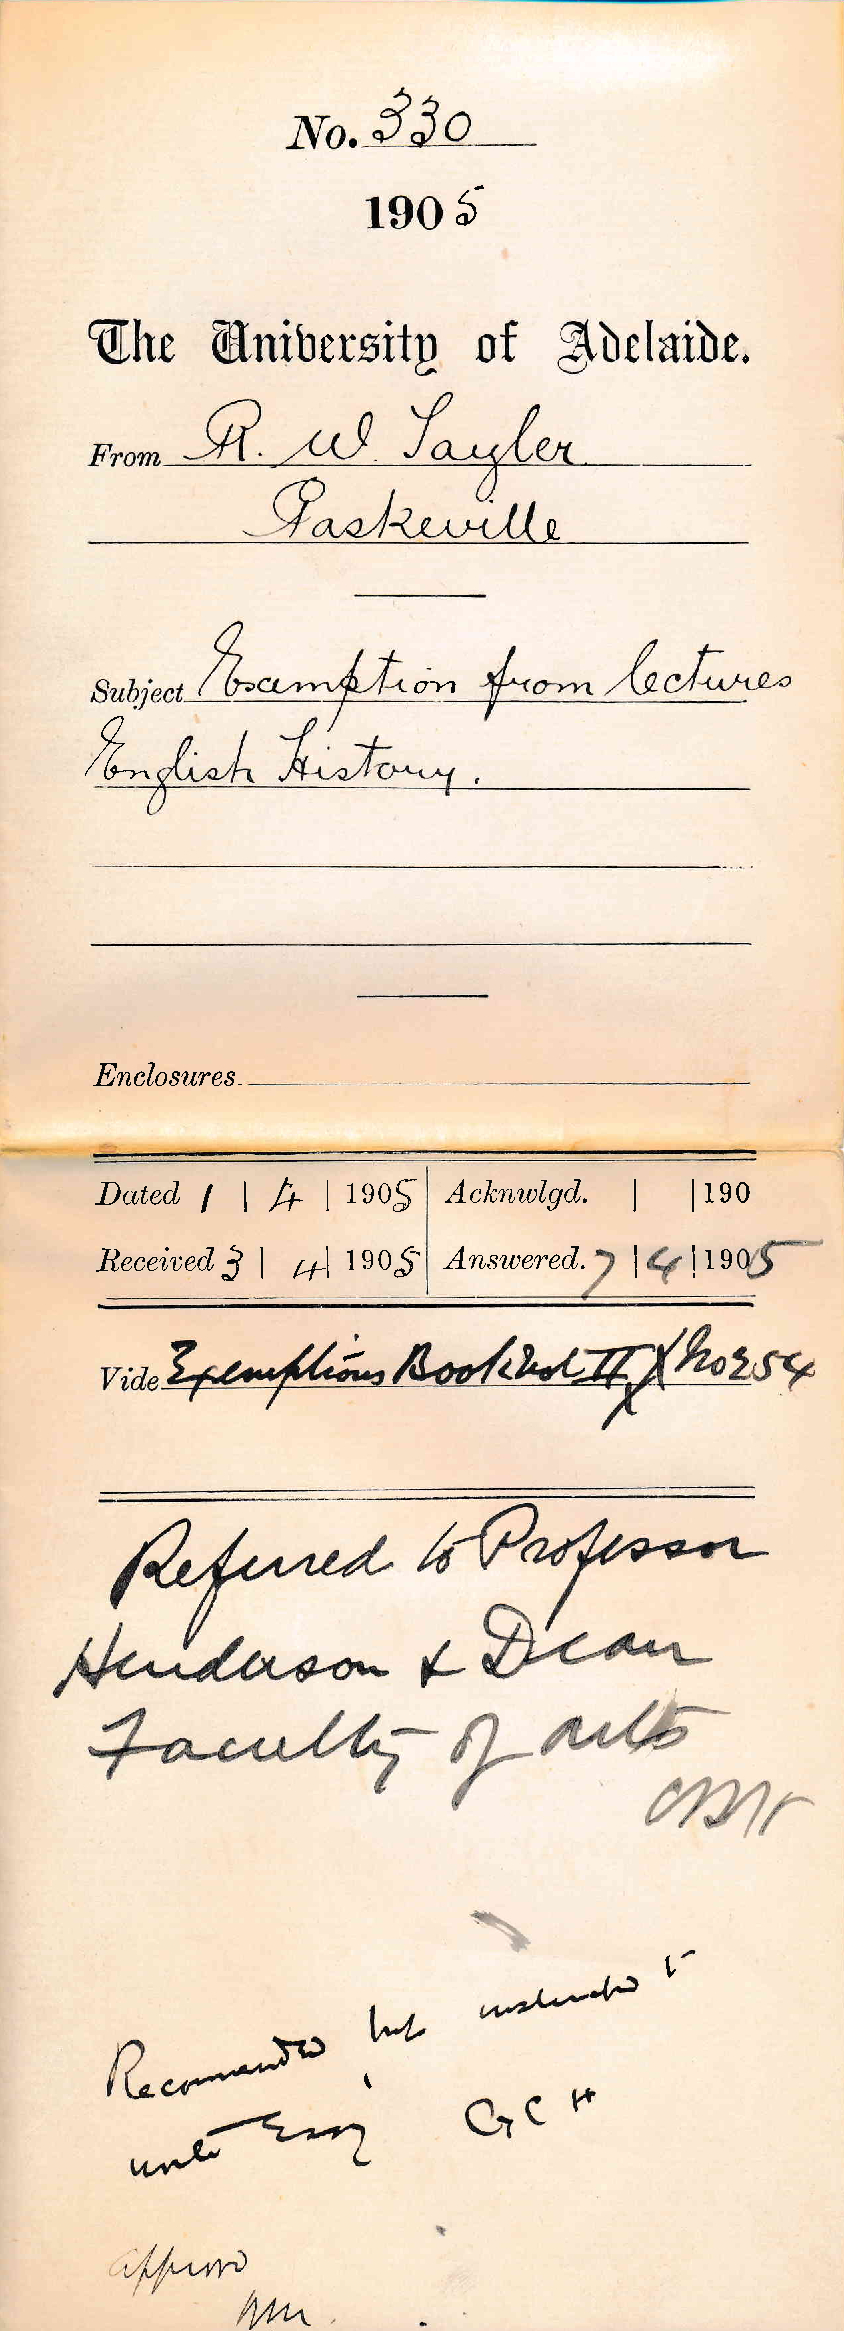 No. 330
1905
The University of Adelaide.
From R. W. Tayler
Paskeville
Subject Exemption from lectures
English History.
Enclosures.
Dated 1 | 4 | 1905 Acknwlgd. | | 190
Received 3 | 4 | 1905 Answered. 7 | 4 | 1905
Vide Exemptions Book Vol II No 254
Referred to Professor
Henderson & Dean
Faculty of Arts
Recommended but instructed to
write Essay GCH